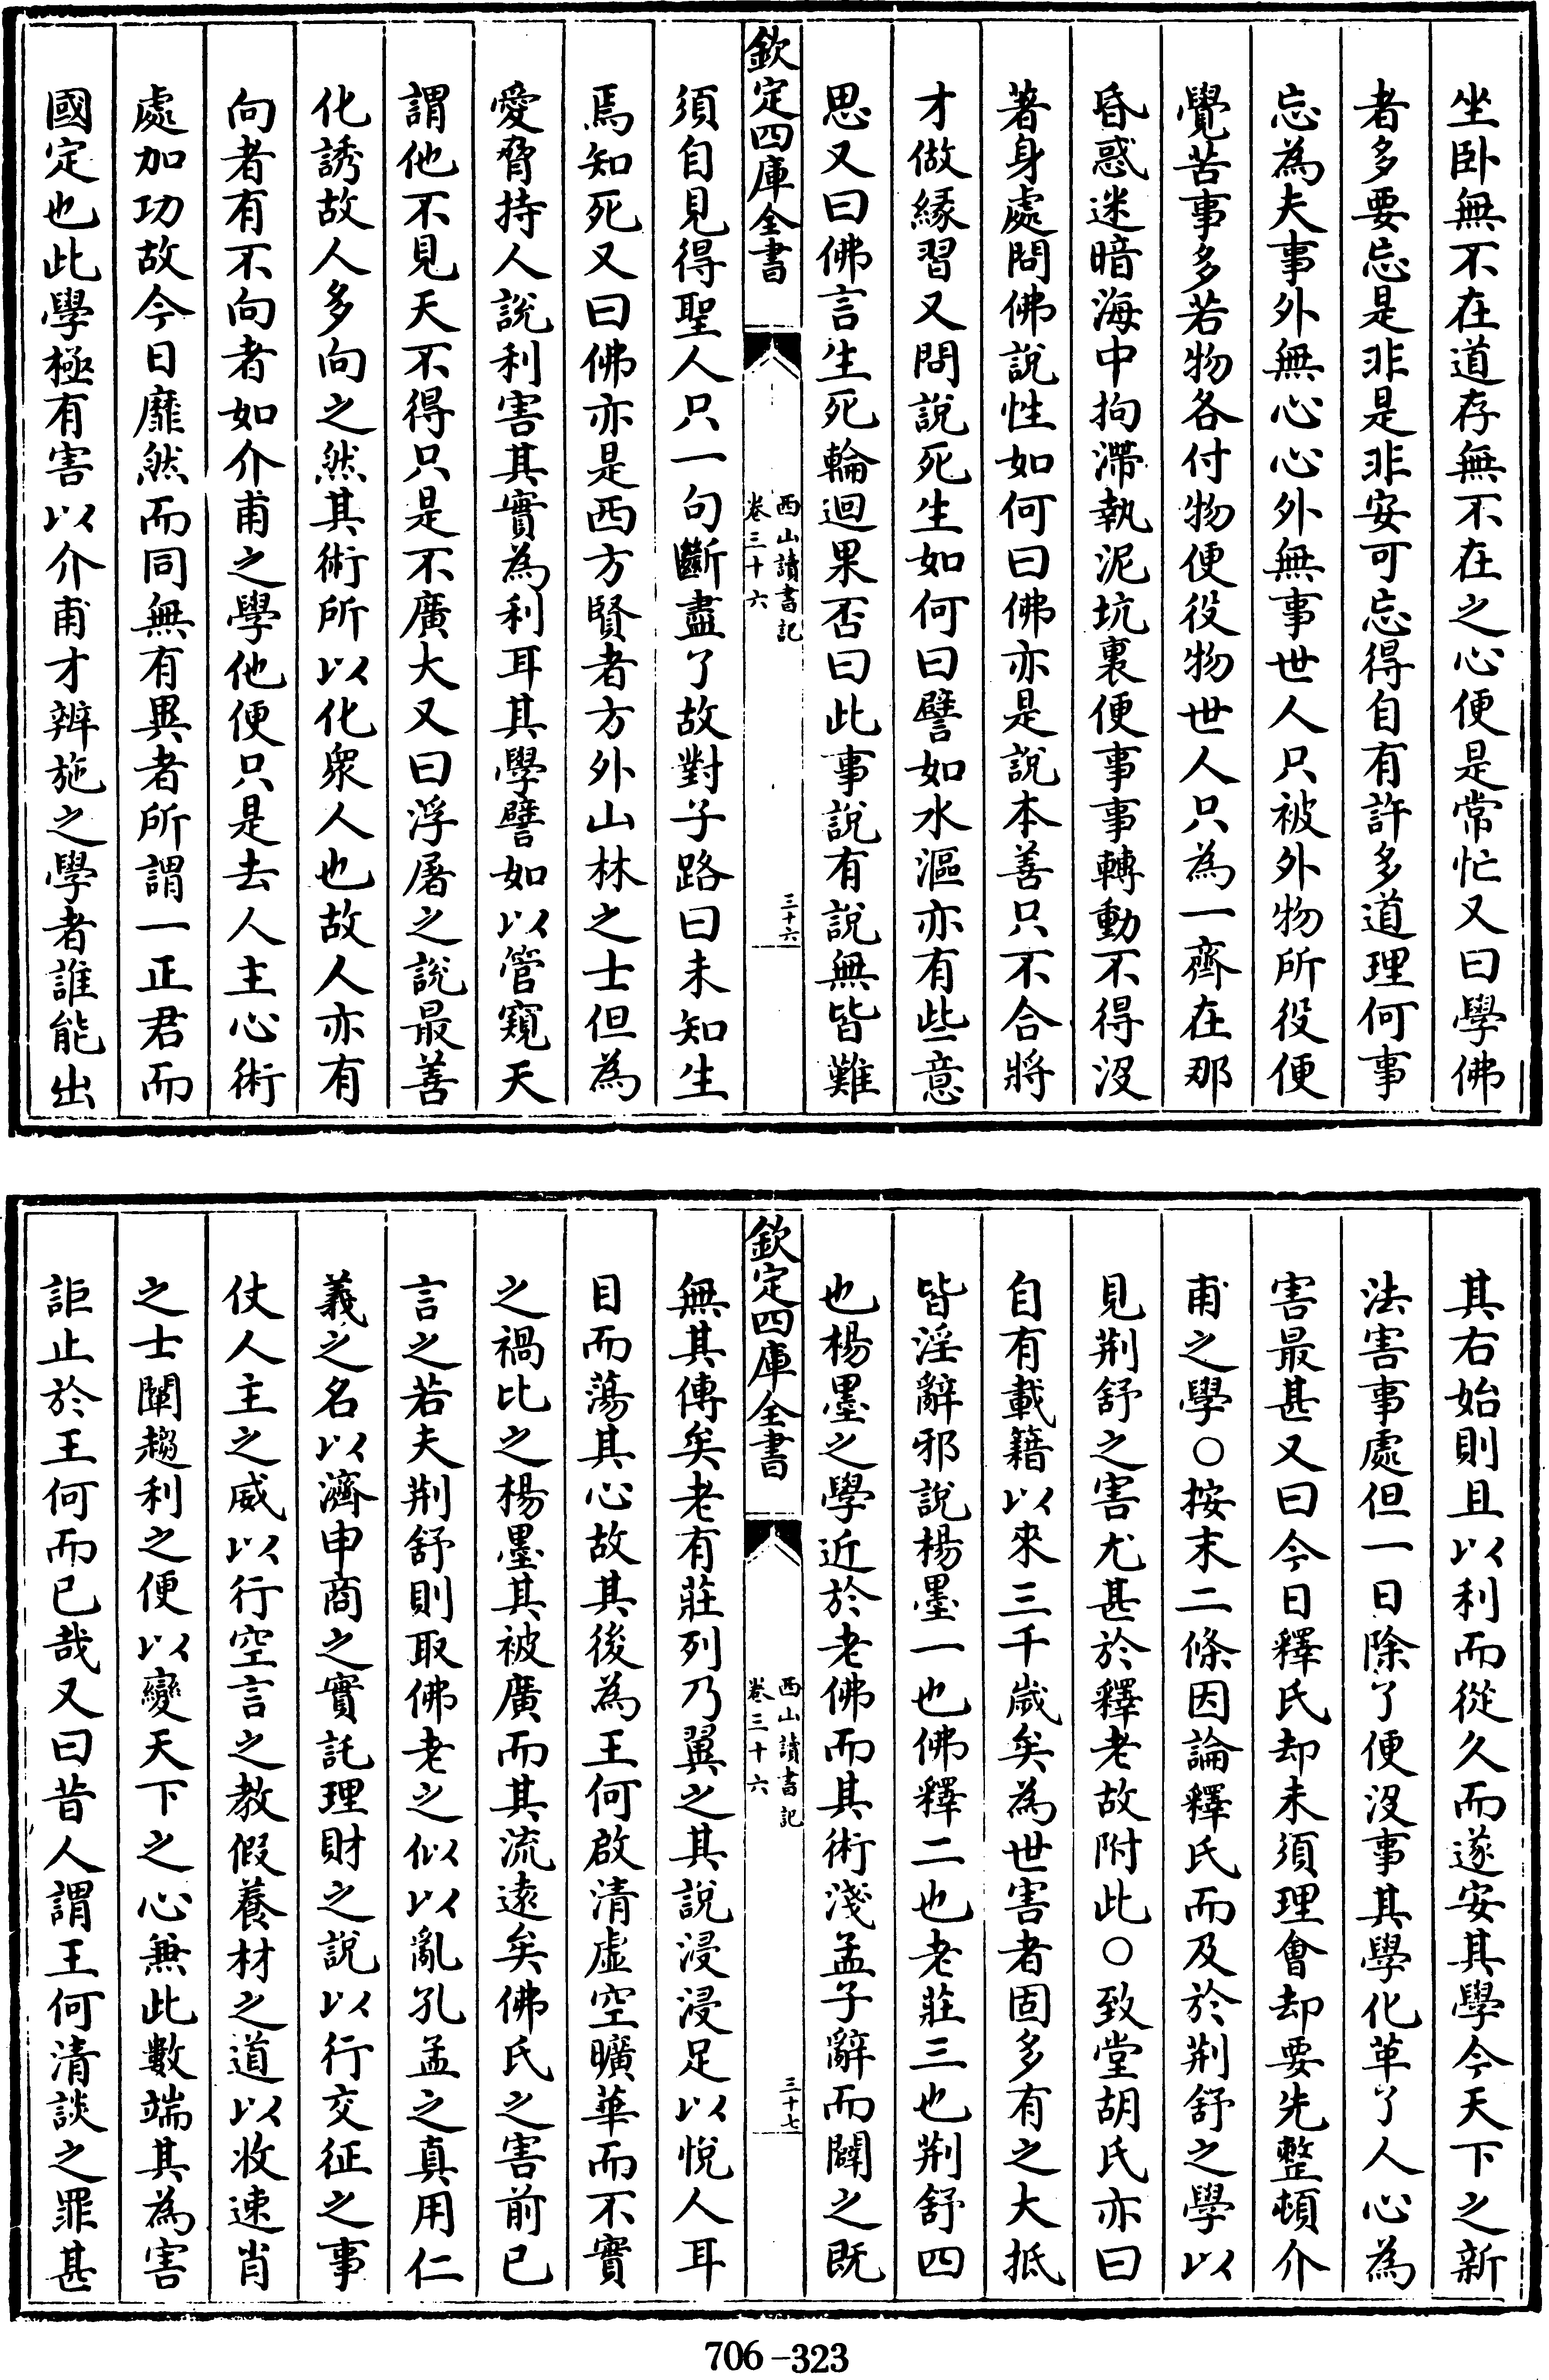 坐卧無不在道存無不在之心便是常忙又曰學佛
者多要忘是非是非安可忘得自有許多道理何事
忘為夫事外無心心外無事世人只被外物所役便
覺苦事多若物各付物便役物世人只為一齊在那
昏惑迷暗海中拘滯執泥坑裏便事事轉動不得沒
著身處問佛說性如何曰佛亦是說本善只不合將
才做緣習又問說死生如何曰譬如水漚亦有些意
思又曰佛言生死輪迴果否曰此事說有說無皆難
欽定四庫全書
西山讀書記
卷三十六
三十六
須自見得聖人只一句斷盡了故對子路曰未知生
焉知死又曰佛亦是西方賢者方外山林之士但為
愛脅持人說利害其實為利耳其學譬如以管窺天
謂他不見天不得只是不廣大又曰浮屠之說最善
化誘故人多向之然其術所以化衆人也故人亦有
向者有不向者如介甫之學他便只是去人主心術
處加功故今日靡然而同無有異者所謂一正君而
國定也此學極有害以介甫才辨施之學者誰能出
其右始則且以利而從久而遂安其學今天下之新
法害事處但一日除了便沒事其學化革了人心為
害最甚又曰今日釋氏却未須理會却要先整頓介
甫之學○按末二條因論釋氏而及於荆舒之學以
見荆舒之害尤甚於釋老故附此○致堂胡氏亦曰
自有載籍以來三千歲矣為世害者固多有之大抵
皆淫辭邪說楊墨一也佛釋二也老莊三也荆舒四
也楊墨之學近於老佛而其術淺孟子辭而闢之既
欽定四庫全書
西山讀書記
卷三十六
三十七
無其傳矣老有莊列乃翼之其說浸浸足以悅人耳
目而蕩其心故其後為王何啟清虛空曠華而不實
之禍比之楊墨其被廣而其流遠矣佛氏之害前已
言之若夫荆舒則取佛老之似以亂孔孟之真用仁
義之名以濟申商之實託理財之說以行交征之事
仗人主之威以行空言之教假養材之道以收速肖
之士闡趨利之便以變天下之心兼此數端其為害
詎止於王何而已哉又曰昔人謂王何清談之罪甚
706-323